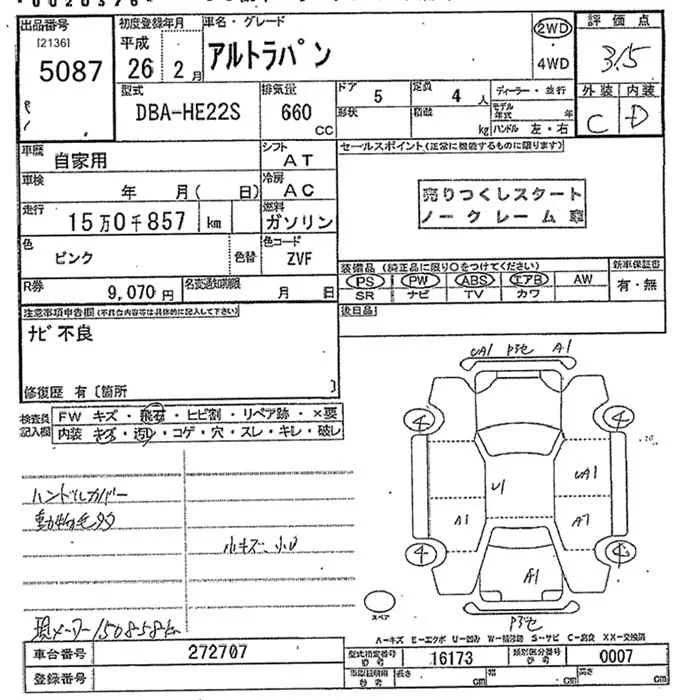 出品番号
[2136]
5087
初度登録年月
平成
26 2月
車名・グレード
アルトラパン
2WD
・
4WD
評価点
3.5
外装 内装
C D
型式
DBA-HE22S
排気量
660
CC
ドア 5
定員 4 人
形状
積載 kg
ディーラー・並行
モデル年式 年
ハンドル 左・右
車歴 自家用
シフト AT
車検 年 月( 日)
冷房 AC
走行 15万0千857 km
燃料 ガソリン
色 ピンク
色替
色コード ZVF
R券 9,070円
名変通知期限 月 日
セールスポイント(正常に機能するものに限ります)
売りつくしスタート
ノークレーム車
装備品(純正品に限り○をつけてください)
PS PW ABS エアB AW
SR ナビ TV カワ
新車保証書
有・無
後日品
注意事項申告欄(不具合内容等は具体的に記入して下さい)
ナビ不良
修復歴 有〔箇所 〕
検査員記入欄
FW キズ・飛石・ヒビ割・リペア跡・×要
内装 キズ・汚れ・コゲ・穴・スレ・キレ・破レ
ハンドルカバー
小キズ、小U
現メーター150858km
UA1 A1
4 4
U1 UA1
A1
4
A1
スペア
A-キズ E-エクボ U-凹み W-補修跡 S-サビ C-腐食 XX-交換済
車台番号 272707
型式指定番号 参考 16173
類別区分番号 参考 0007
登録番号
長さ cm 幅 cm 高さ cm